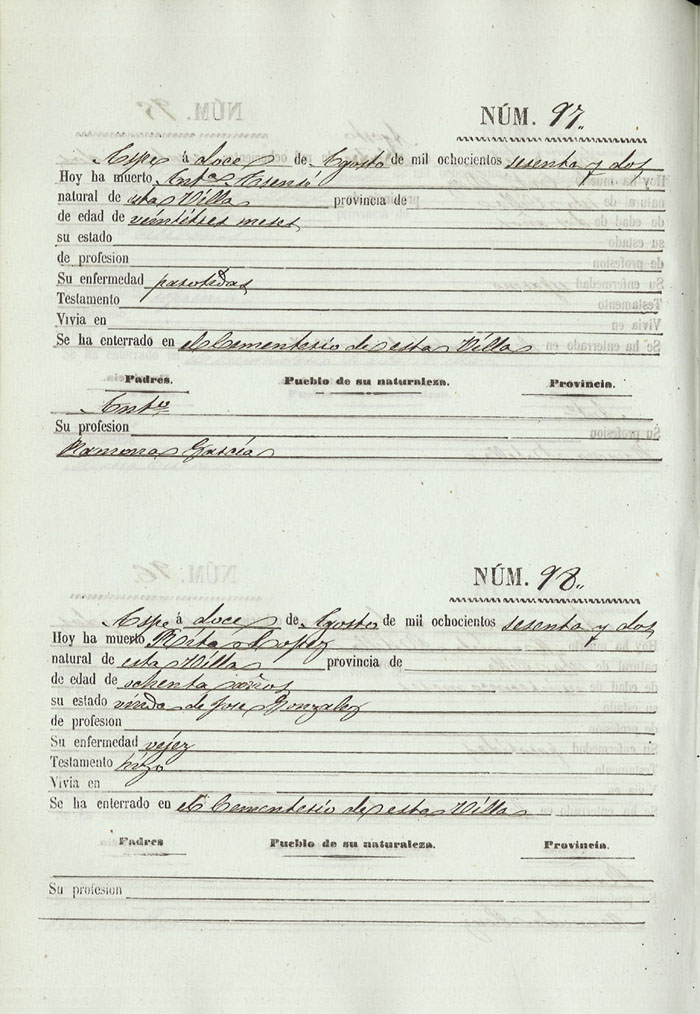 NÚM. 97.
Aspe á doce de Agosto de mil ochocientos sesenta y dos
Hoy ha muerto Antª Asensi
natural de esta Villa provincia de
de edad de veintitres meses
su estado
de profesion
Su enfermedad parotidas
Testamento
Vivia en
Se ha enterrado en el Cementerio de esta Villa
Padres. Pueblo de su naturaleza. Provincia.
Antº
Su profesion
Ramona García
NÚM. 98.
Aspe á doce de Agosto de mil ochocientos sesenta y dos
Hoy ha muerto Rita Lopez
natural de esta Villa provincia de
de edad de ochenta años
su estado viuda de Jose Gonzalez
de profesion
Su enfermedad vejez
Testamento hizo
Vivia en
Se ha enterrado en el Cementerio de esta Villa
Padres Pueblo de su naturaleza. Provincia.
Su profesion